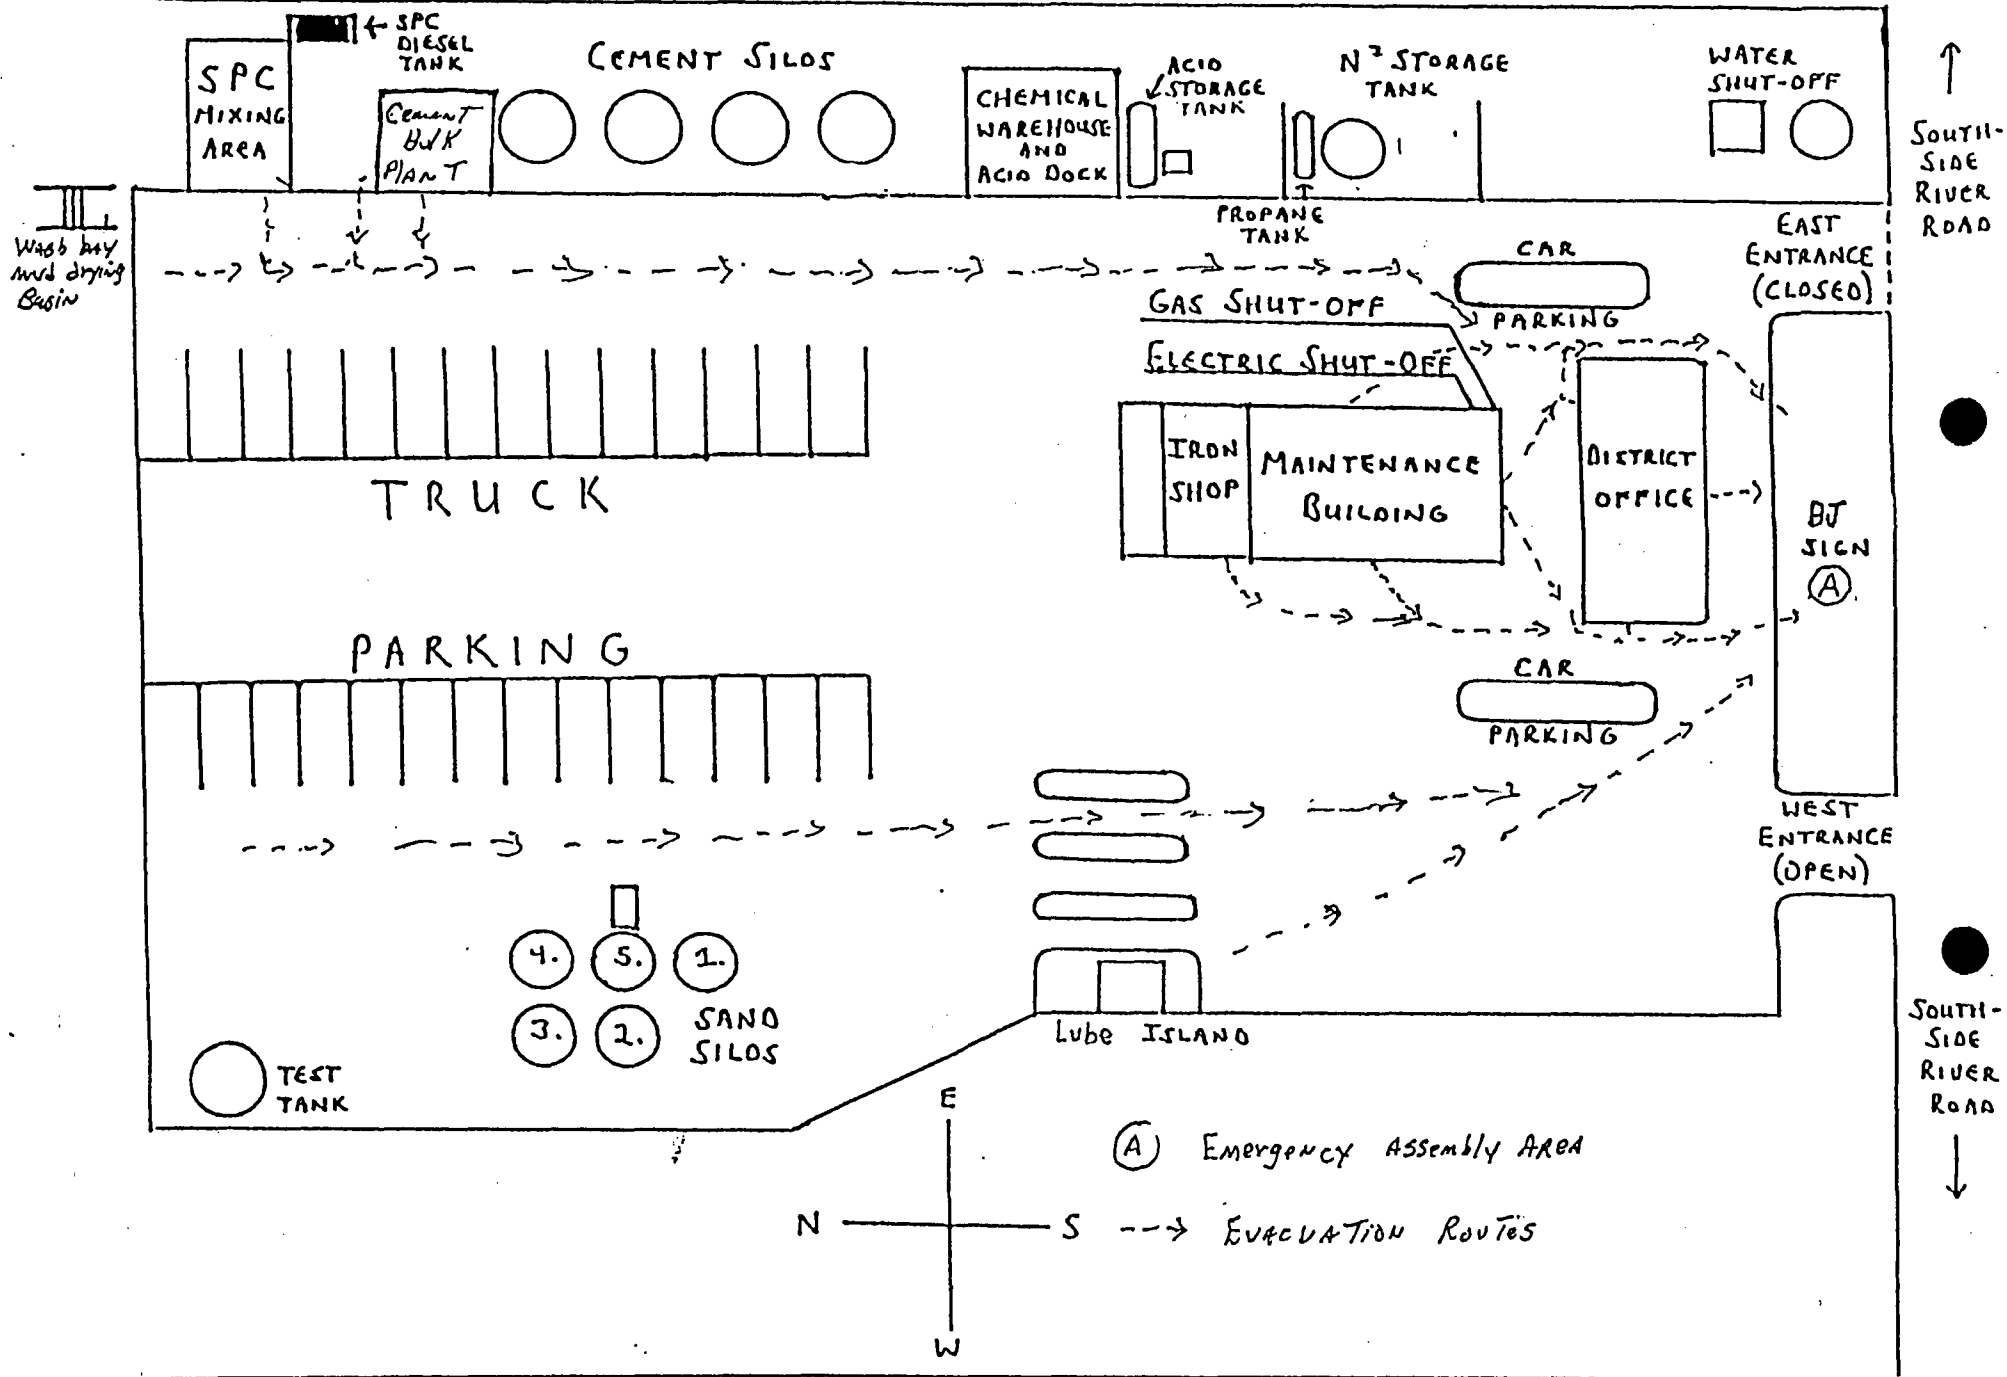 SPC
DIESEL
TANK
SPC
MIXING
AREA
Cement
Bulk
PlANT
CEMENT SILOS
CHEMICAL
WAREHOUSE
AND
ACID DOCK
ACID
STORAGE
TANK
N² STORAGE
TANK
PROPANE
TANK
WATER
SHUT-OFF
SOUTH-
SIDE
RIVER
ROAD
Wash bay
mud drying
Basin
EAST
ENTRANCE
(CLOSED)
CAR
PARKING
GAS SHUT-OFF
ELECTRIC SHUT-OFF
IRON
SHOP
MAINTENANCE
BUILDING
DISTRICT
OFFICE
BJ
SIGN
A
TRUCK
PARKING
CAR
PARKING
WEST
ENTRANCE
(OPEN)
4. 5. 1.
3. 2.
SAND
SILOS
TEST
TANK
Lube ISLAND
SOUTH-
SIDE
RIVER
ROAD
E
N S
W
A Emergency Assembly Area
EVACUATION ROUTES